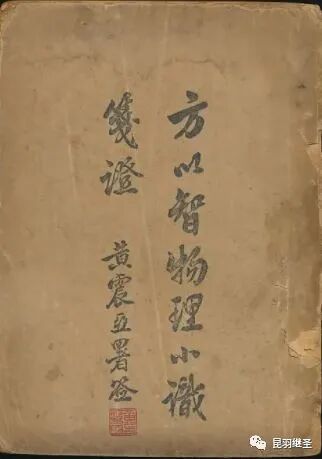 方以智物理小識
箋證
黃震亞署签
昆羽继圣